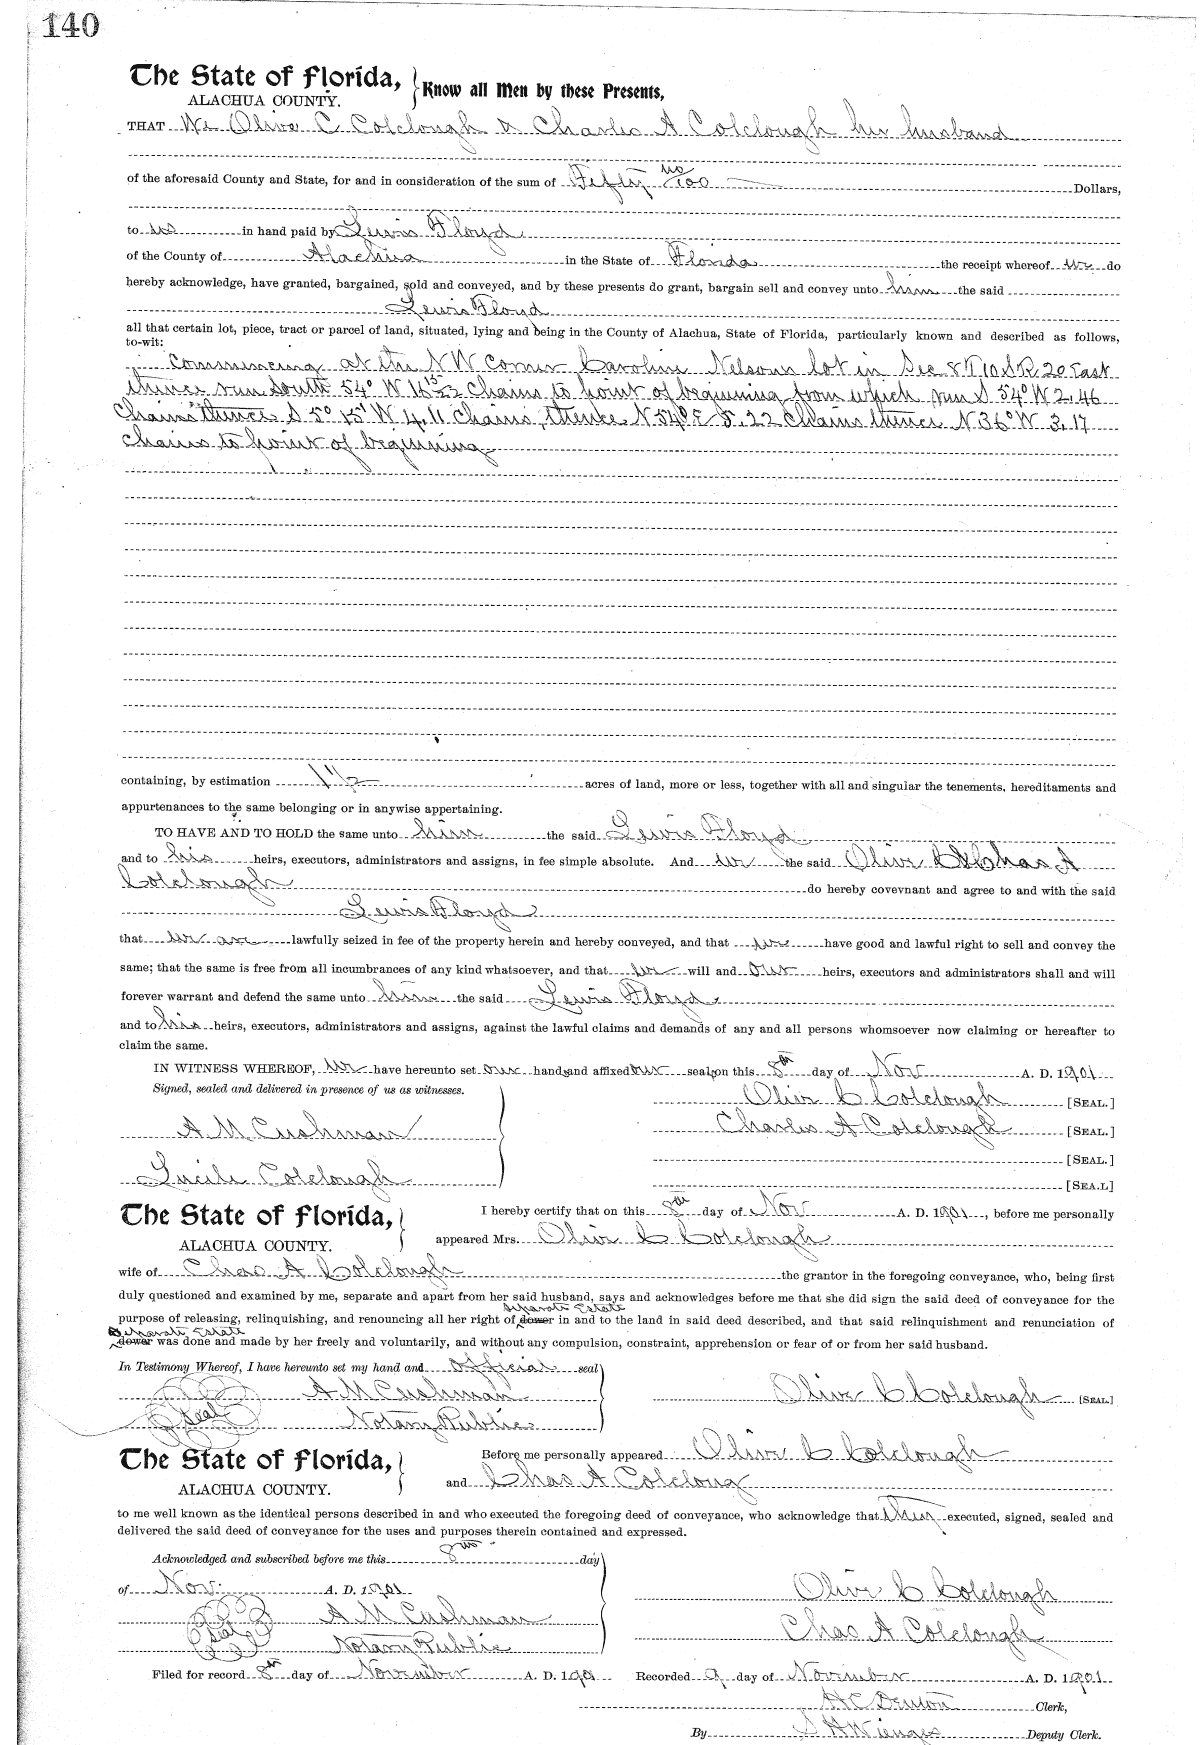 140
The State of Florida, Know all Men by these Presents,
ALACHUA COUNTY.
THAT We Olive C Colclough & Charles A Colclough her husband
of the aforesaid County and State, for and in consideration of the sum of Fifty no/100 Dollars,
to us in hand paid by Lewis Floyd
of the County of Alachua in the State of Florida the receipt whereof we do
hereby acknowledge, have granted, bargained, sold and conveyed, and by these presents do grant, bargain sell and convey unto him the said
Lewis Floyd
all that certain lot, piece, tract or parcel of land, situated, lying and being in the County of Alachua, State of Florida, particularly known and described as follows,
to-wit:
Commencing at the NW Corner Caroline Nelsons lot in Sec 8 T 10 S R 20 East
thence run South 54° W 16 15/22 Chains to point of beginning from which run S 54° W 2.46
Chains thence S 5° 15' W 4.11 Chains, thence N 54° E 5.22 Chains thence N 36° W 3.17
Chains to point of beginning
containing, by estimation 1 1/2 acres of land, more or less, together with all and singular the tenements, hereditaments and
appurtenances to the same belonging or in anywise appertaining.
TO HAVE AND TO HOLD the same unto him the said Lewis Floyd
and to his heirs, executors, administrators and assigns, in fee simple absolute. And we the said Olive C & Chas A
Colclough do hereby covevnant and agree to and with the said
Lewis Floyd
that we are lawfully seized in fee of the property herein and hereby conveyed, and that we have good and lawful right to sell and convey the
same; that the same is free from all incumbrances of any kind whatsoever, and that we will and our heirs, executors and administrators shall and will
forever warrant and defend the same unto him the said Lewis Floyd
and to his heirs, executors, administrators and assigns, against the lawful claims and demands of any and all persons whomsoever now claiming or hereafter to
claim the same.
IN WITNESS WHEREOF, we have hereunto set our hands and affixed our seals on this 8th day of Nov A. D. 1901
Signed, sealed and delivered in presence of us as witnesses.
Olive C Colclough [SEAL.]
A M Cushman Charles A Colclough [SEAL.]
[SEAL.]
Lucile Colclough [SEA.L]
The State of Florida, I hereby certify that on this 8th day of Nov A. D. 1901, before me personally
ALACHUA COUNTY. appeared Mrs. Olive C Colclough
wife of Chas A Colclough the grantor in the foregoing conveyance, who, being first
duly questioned and examined by me, separate and apart from her said husband, says and acknowledges before me that she did sign the said deed of conveyance for the
separate Estate
purpose of releasing, relinquishing, and renouncing all her right of dower in and to the land in said deed described, and that said relinquishment and renunciation of
separate Estate
dower was done and made by her freely and voluntarily, and without any compulsion, constraint, apprehension or fear of or from her said husband.
In Testimony Whereof, I have hereunto set my hand and official seal
A M Cushman Olive C Colclough [SEAL]
Seal Notary Public
The State of Florida, Before me personally appeared Olive C Colclough
ALACHUA COUNTY. and Chas A Colcloug
to me well known as the identical persons described in and who executed the foregoing deed of conveyance, who acknowledge that they executed, signed, sealed and
delivered the said deed of conveyance for the uses and purposes therein contained and expressed.
Acknowledged and subscribed before me this 8th day
of Nov. A. D. 1901 Olive C Colclough
Seal A M Cushman Chas A Colclough
Notary Public
Filed for record 8th day of November A. D. 190 Recorded 9 day of November A. D. 1901
H C Denton Clerk,
By S H Wienges Deputy Clerk.